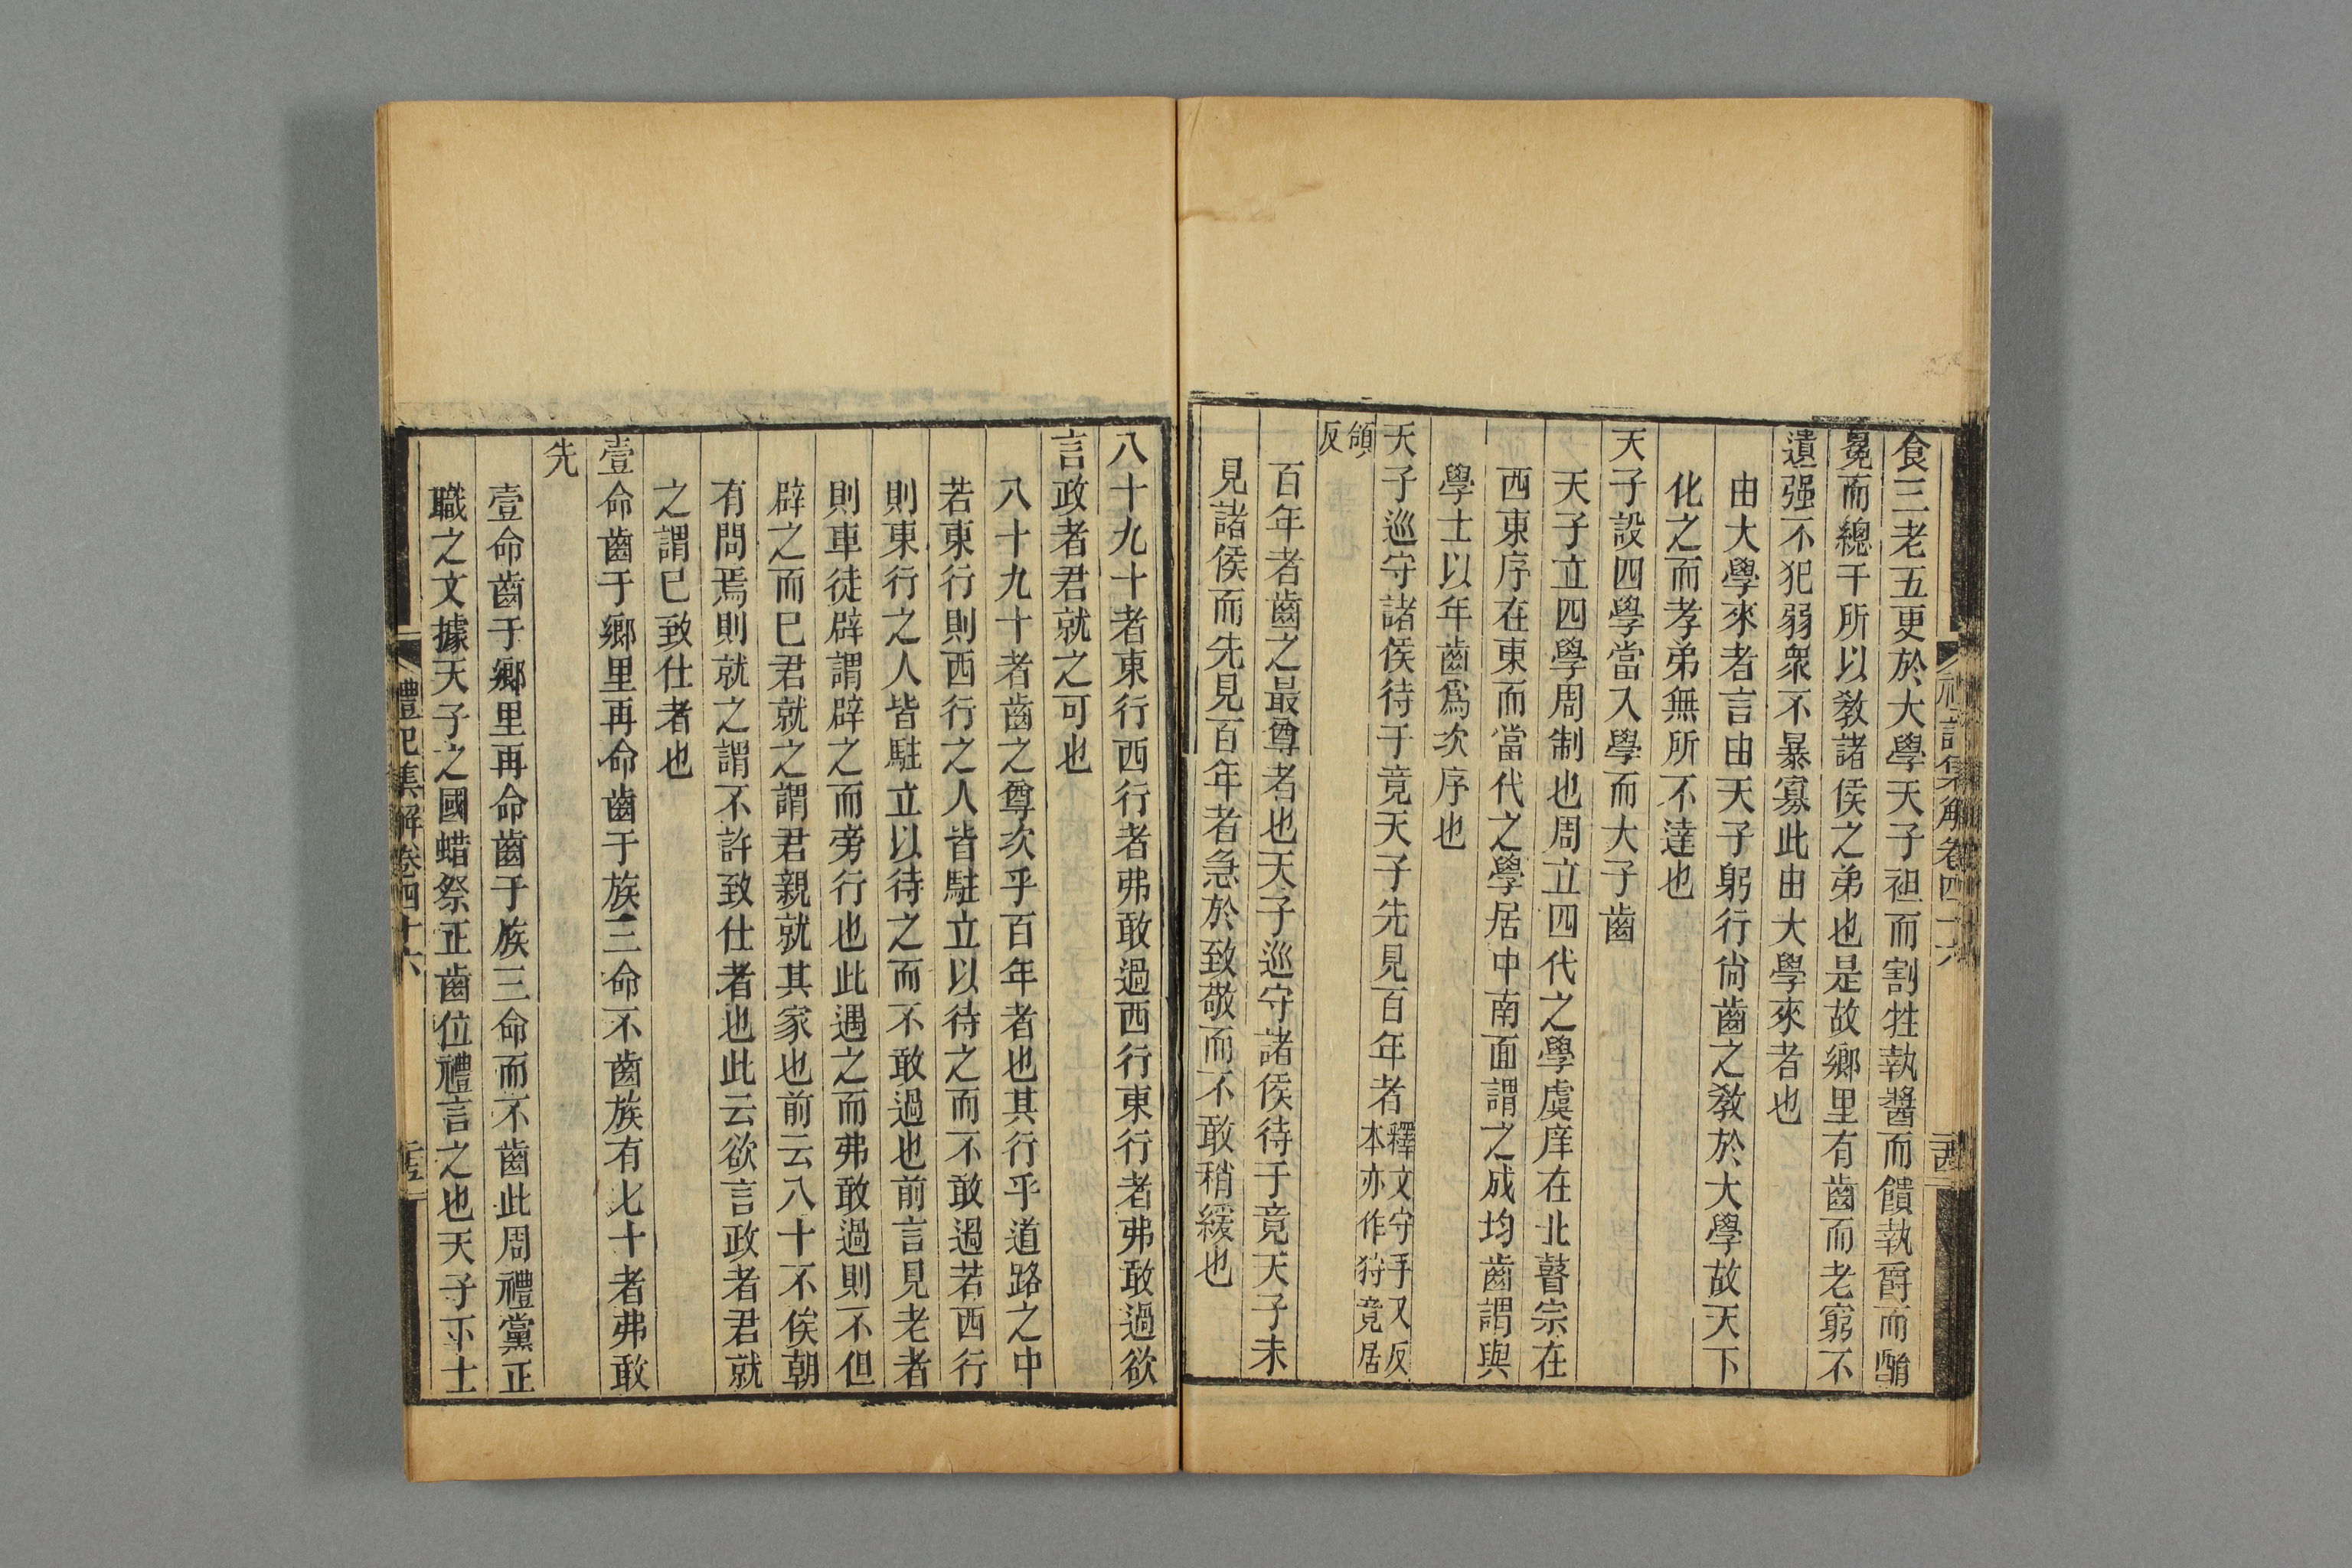 食三老五更於大學天子袒而割牲執醬而饋執爵而酳
冕而總干所以敎諸侯之弟也是故鄉里有齒而老窮不
遺强不犯弱衆不暴寡此由大學來者也
由大學來者言由天子躬行尙齒之敎於大學故天下
化之而孝弟無所不達也
天子設四學當入學而大子齒
天子立四學周制也周立四代之學虞庠在北瞽宗在
西東序在東而當代之學居中南面謂之成均齒謂與
學士以年齒爲次序也
天子巡守諸侯待于竟天子先見百年者釋文守手又反
本亦作狩竟居
領
反
百年者齒之最尊者也天子巡守諸侯待于竟天子未
見諸侯而先見百年者急於致敬而不敢稍緩也
八十九十者東行西行者弗敢過西行東行者弗敢過欲
言政者君就之可也
八十九十者齒之尊次乎百年者也其行乎道路之中
若東行則西行之人皆駐立以待之而不敢過若西行
則東行之人皆駐立以待之而不敢過也前言見老者
則車徒辟謂辟之而旁行也此遇之而弗敢過則不但
辟之而已君就之謂君親就其家也前云八十不俟朝
有問焉則就之謂不許致仕者也此云欲言政者君就
之謂已致仕者也
壹命齒于鄉里再命齒于族三命不齒族有七十者弗敢
先
壹命齒于鄉里再命齒于族三命而不齒此周禮黨正
職之文據天子之國蜡祭正齒位禮言之也天子下士
禮記集解卷四十六